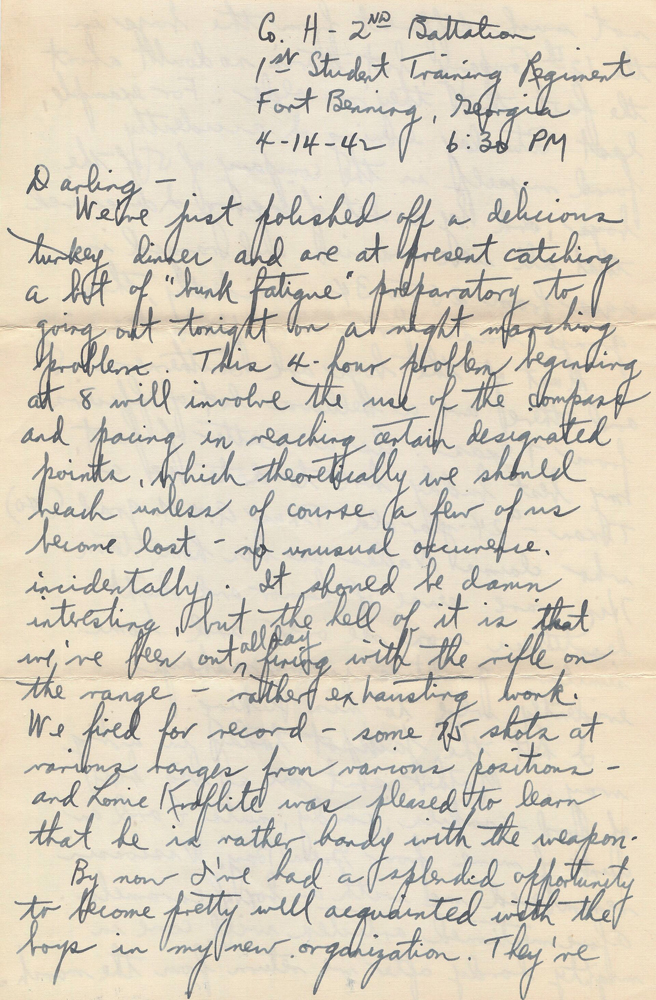 Co. H - 2ND Battalion
1st Student Training Regiment
Fort Benning, Georgia
4-14-42 6:30 PM
Darling -
We've just polished off a delicious
turkey dinner and are at present catching
a bit of "bunk fatigue" preparatory to
going out tonight on a night marching
problem. This 4-hour problem beginning
at 8 will involve the use of the compass
and pacing in reaching certain designated
points, which theoretically we should
reach unless of course a few of us
become lost - no unusual occurence.
incidentally. It should be damn
interesting, but the hell of it is that
we've been out all day firing with the rifle on
the range - rather exhausting work.
We fired for record - some 75 shots at
various ranges from various positions -
and was pleased to learn
that he is rather handy with the weapon.
By now I've had a splendid opportunity
to become pretty well acquainted with the
boys in my new organization. They've